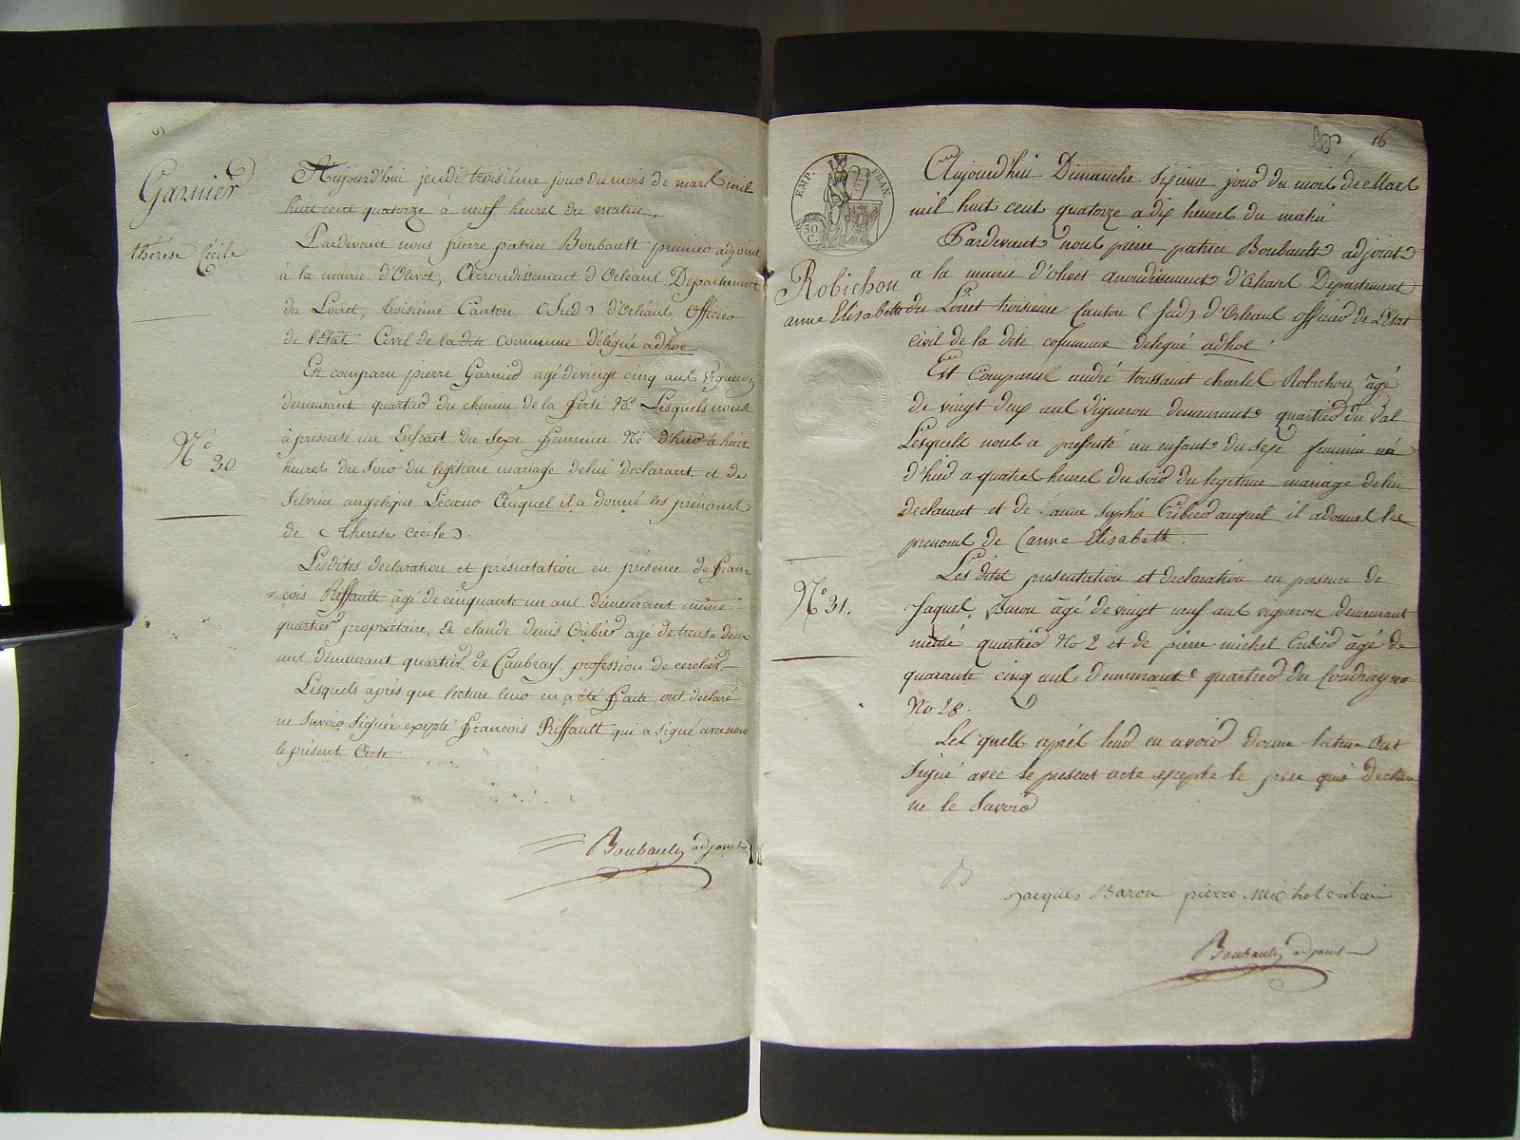 Garnier
thérèse Cécile
N° 30
Aujourd'hui jeudi troisième jour du mois de mars mil
huit cent quatorze à neuf heures du matin,
Pardevant nous pierre patrice Boubault premier adjoint
à la mairie d'Olivet, Arrondissement d'Orléans Département
du Loiret, troisième Canton (Sud) d'Orléans officier
de l'Etat Civil de la dite commune délégué adhoc
Est comparu pierre Garnier agé de vingt cinq ans Vigneron
demeurant quartier du chemin de la ferté Lesquels nous
à présenté un Enfant du Sexe féminin Né d'hier à huit
heures du soir du légitime mariage de lui déclarant et de
angelique Auquel il a donné les prénoms
de Thérèse Cécile
Lesdites déclaration et présentation en présence de fran-
çois Riffault âgé de cinquante un ans demeurant même
quartier propriétaire, de claude denis Cribier agé de trente deux
ans demeurant quartier de profession de cerclier
Lesquels après que lecture leur en a été faite ont déclaré
ne Savoir Signer excepté françois Riffault qui a signé avec nous
le présent Acte
Boubault adjoint
16
EMP. FRAN.
50 C.
Robichon
anne Elisabeth
N° 31.
Aujourd'hui Dimanche Sixième jour du mois de Mars
mil huit cent quatorze a dix heures du matin
Pardevant nous pierre patrice Boubault adjoint
a la mairie d'olivet arrondissement d'Orleans Departement
du Loiret troisieme Canton (Sud) d'Orleans officier de l'Etat
civil de la dite commune delegué adhoc
Est Comparus andré toussaint charles Robichon âgé
de vingt deux ans Vigneron demeurant quartier du Val
Lesquels nous a présenté un enfant du sexe feminin né
d'hier a quatre heures du soir du legitime mariage de lui
declarant et de anne Sophie Cribier auquel il a donnés les
prenoms de anne Elisabeth.
Les dites presentation et declaration en presence de
Jaques Baron âgé de vingt neuf ans vigneron demeurant
même quartier No 2 et de pierre michel Cribier âgé de
quarante cinq ans demeurant quartier du Coudray
No 28.
Les quels après leur en avoir donné lecture ont
signé avec le present acte excepte le pere qui a declaré
ne le Savoir
jacques Baron pierre michel cribier
Boubault adjoint